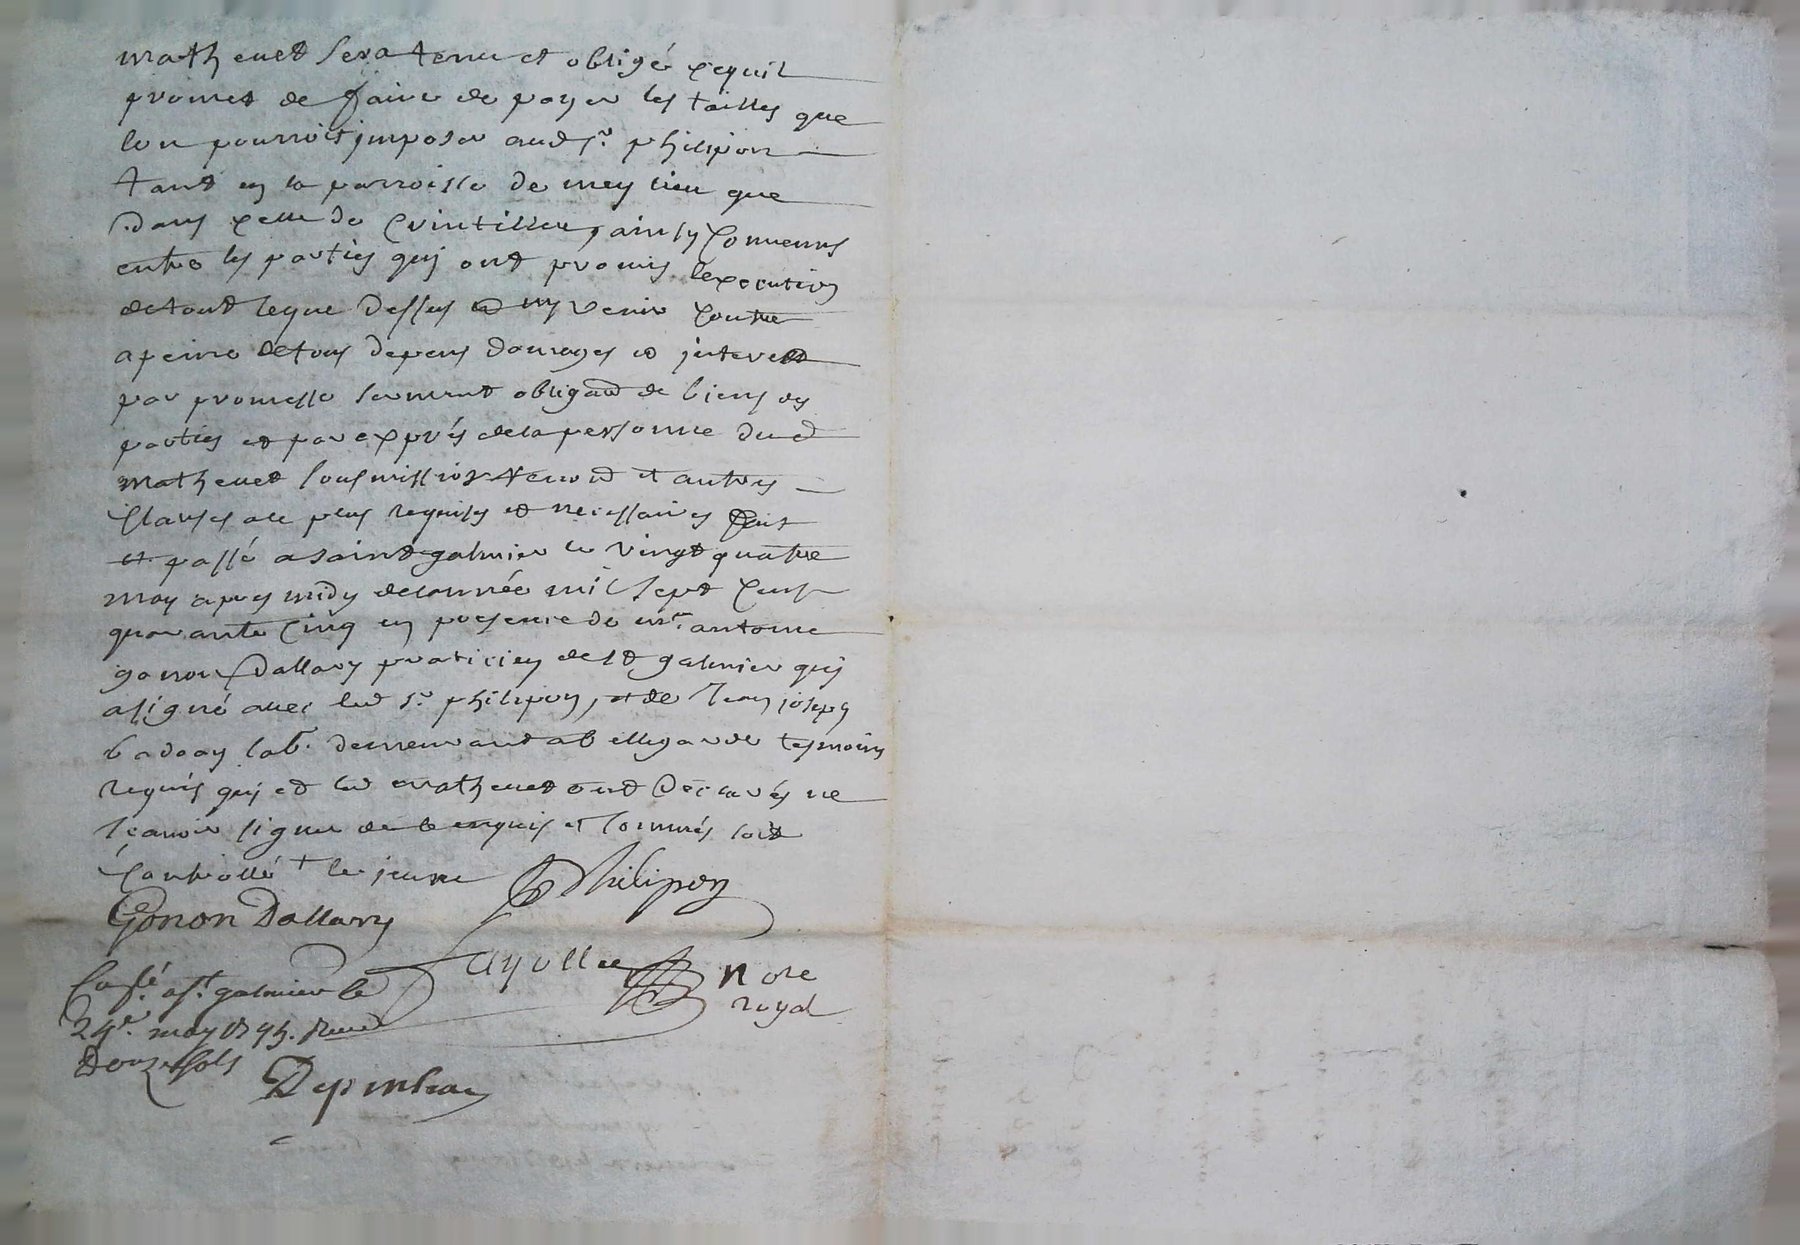 mathevet sera tenu et obligé cequil
promet de faire de payer les tailles que
lon pourroit jmposer aud sr. philipon
tant en la parroisse de meylieu que
dans celle de Cuintilleu, ainsy convenus
entre les parties quj ont promis lexecution
detout ceque dessus et ny venir contre
apeine detous depens domages et jnterest
par promesse serment obligaon de biens des
parties et par exprés delapersonne dud
mathevet sousmission renond et autres
clauses au plus requises et necessaires fait
et passé asaint galmier le vingt quatre
may apres midy delannée mil sept cens
quarante cinq en presence de mr. antoine
gonon Dallary praticien de st galmier quj
asigné avec led sr. philipon, et de Jean joseph
badoay lab. demeurant abellegarde tesmoins
requis quj et led mathevet ont declarés ne
scavoir signer de ce enquis et sommés soit
controllé + le jeune Philipon
Gonon Dallary
Layolle nore
royal
Col.é a st. galmier le
24e. may 1745. Recu
Douze sols